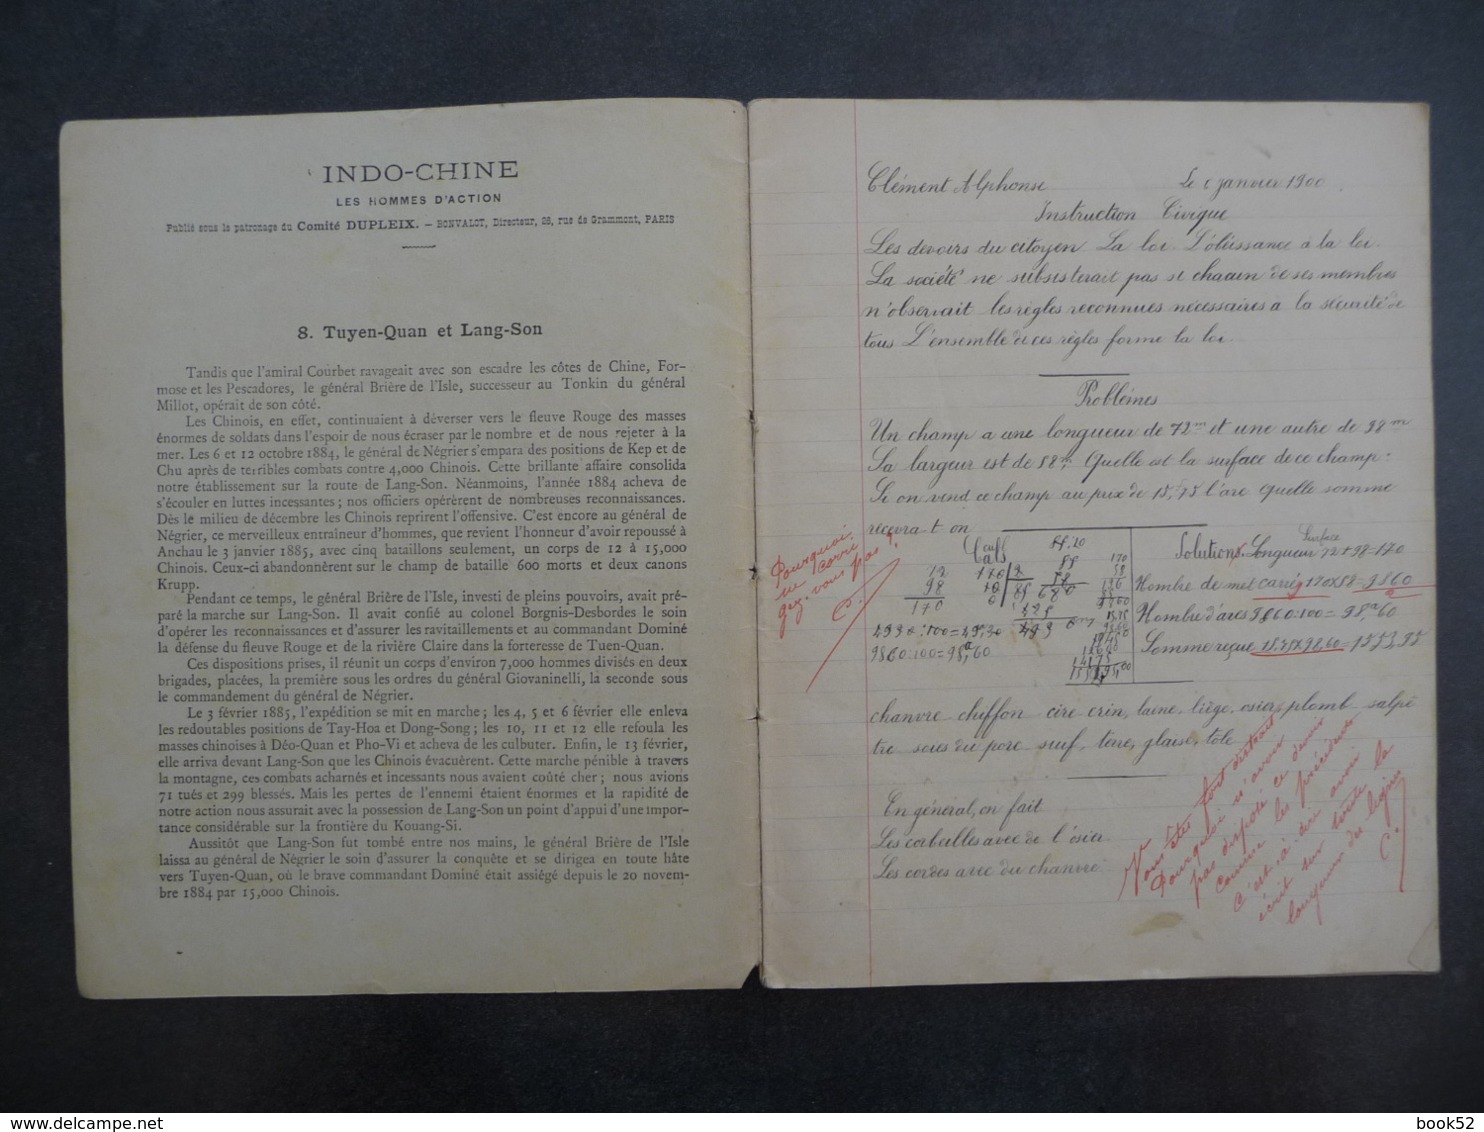 INDO-CHINE
LES HOMMES D'ACTION
Publié sous le patronage du Comité DUPLEIX. — BONVALOT, Directeur, 26, rue de Grammont, PARIS
8. Tuyen-Quan et Lang-Son
Tandis que l'amiral Courbet ravageait avec son escadre les côtes de Chine, For-
mose et les Pescadores, le général Brière de l'Isle, successeur au Tonkin du général
Millot, opérait de son côté.
Les Chinois, en effet, continuaient à déverser vers le fleuve Rouge des masses
énormes de soldats dans l'espoir de nous écraser par le nombre et de nous rejeter à la
mer. Les 6 et 12 octobre 1884, le général de Négrier s'empara des positions de Kep et de
Chu après de terribles combats contre 4,000 Chinois. Cette brillante affaire consolida
notre établissement sur la route de Lang-Son. Néanmoins, l'année 1884 acheva de
s'écouler en luttes incessantes ; nos officiers opérèrent de nombreuses reconnaissances.
Dès le milieu de décembre les Chinois reprirent l'offensive. C'est encore au général de
Négrier, ce merveilleux entraîneur d'hommes, que revient l'honneur d'avoir repoussé à
Anchau le 3 janvier 1885, avec cinq bataillons seulement, un corps de 12 à 15,000
Chinois. Ceux-ci abandonnèrent sur le champ de bataille 600 morts et deux canons
Krupp.
Pendant ce temps, le général Brière de l'Isle, investi de pleins pouvoirs, avait pré-
paré la marche sur Lang-Son. Il avait confié au colonel Borgnis-Desbordes le soin
d'opérer les reconnaissances et d'assurer les ravitaillements et au commandant Dominé
la défense du fleuve Rouge et de la rivière Claire dans la forteresse de Tuen-Quan.
Ces dispositions prises, il réunit un corps d'environ 7,000 hommes divisés en deux
brigades, placées, la première sous les ordres du général Giovaninelli, la seconde sous
le commandement du général de Négrier.
Le 3 février 1885, l'expédition se mit en marche ; les 4, 5 et 6 février elle enleva
les redoutables positions de Tay-Hoa et Dong-Song ; les 10, 11 et 12 elle refoula les
masses chinoises à Déo-Quan et Pho-Vi et acheva de les culbuter. Enfin, le 13 février,
elle arriva devant Lang-Son que les Chinois évacuèrent. Cette marche pénible à travers
la montagne, ces combats acharnés et incessants nous avaient coûté cher ; nous avions
71 tués et 299 blessés. Mais les pertes de l'ennemi étaient énormes et la rapidité de
notre action nous assurait avec la possession de Lang-Son un point d'appui d'une impor-
tance considérable sur la frontière du Kouang-Si.
Aussitôt que Lang-Son fut tombé entre nos mains, le général Brière de l'Isle
laissa au général de Négrier le soin d'assurer la conquête et se dirigea en toute hâte
vers Tuyen-Quan, où le brave commandant Dominé était assiégé depuis le 20 novem-
bre 1884 par 15,000 Chinois.
Clément Alphonse Le janvier 1900
Instruction Civique
Les devoirs du citoyen La loi L'obéissance à la loi.
La société ne subsisterait pas si chacun de ses membres
n'observait les règles reconnues nécessaires à la sécurité de
tous L'ensemble de ces règles forme la loi
Problèmes
Un champ a une longueur de 72m et une autre de 98m
Sa largeur est de 58m. Quelle est la surface de ce champ.
Si on vend ce champ au prix de 15,75 l'are Quelle somme
recevra-t on
Pourquoi
ne corri
gez-vous pas ?
C.
Calculs
72
98
170
4930:100=49,30
9860:100=98a,60
Surface
Solutions Longueur 72+98=170
Nombre de met carrés 170x58=9860
Nombre d'ares 9860:100=98a,60
Somme reçue 15.75x98,60=1553,95
chanvre chiffon cire crin, laine, liège, osier, plomb salpê
tre soies du porc suif, terre, glaise, tôle
En général, on fait
Les corbeilles avec de l'osier.
Les cordes avec du chanvre
Vous êtes fort distrait
Pourquoi n'avoir
pas disposé ce devoir
comme les précédents
c'est-à-dire avoir
écrit sur toute la
longueur des lignes
C.
delcampe.net
book52